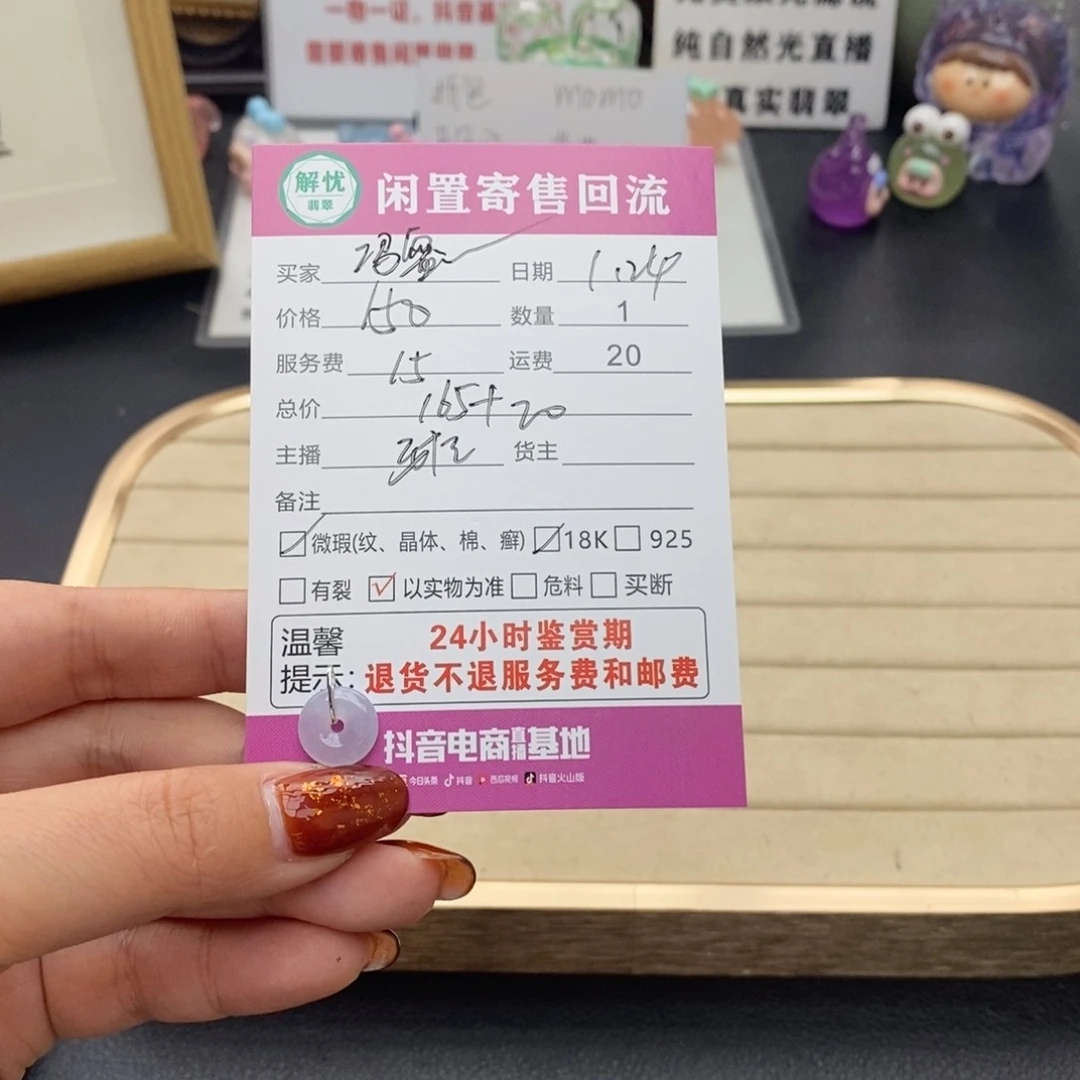 一物一证，抖音基
纯自然光直播
真实翡翠
momo
解忧
翡翠
闲置寄售回流
买家 日期 1.24
价格 150 数量 1
服务费 15 运费 20
总价 165+20
主播 球球 货主
备注
微瑕(纹、晶体、棉、癣) 18K 925
有裂 以实物为准 危料 买断
温馨 24小时鉴赏期
提示: 退货不退服务费和邮费
抖音电商直播基地
今日头条 抖音 西瓜视频 抖音火山版